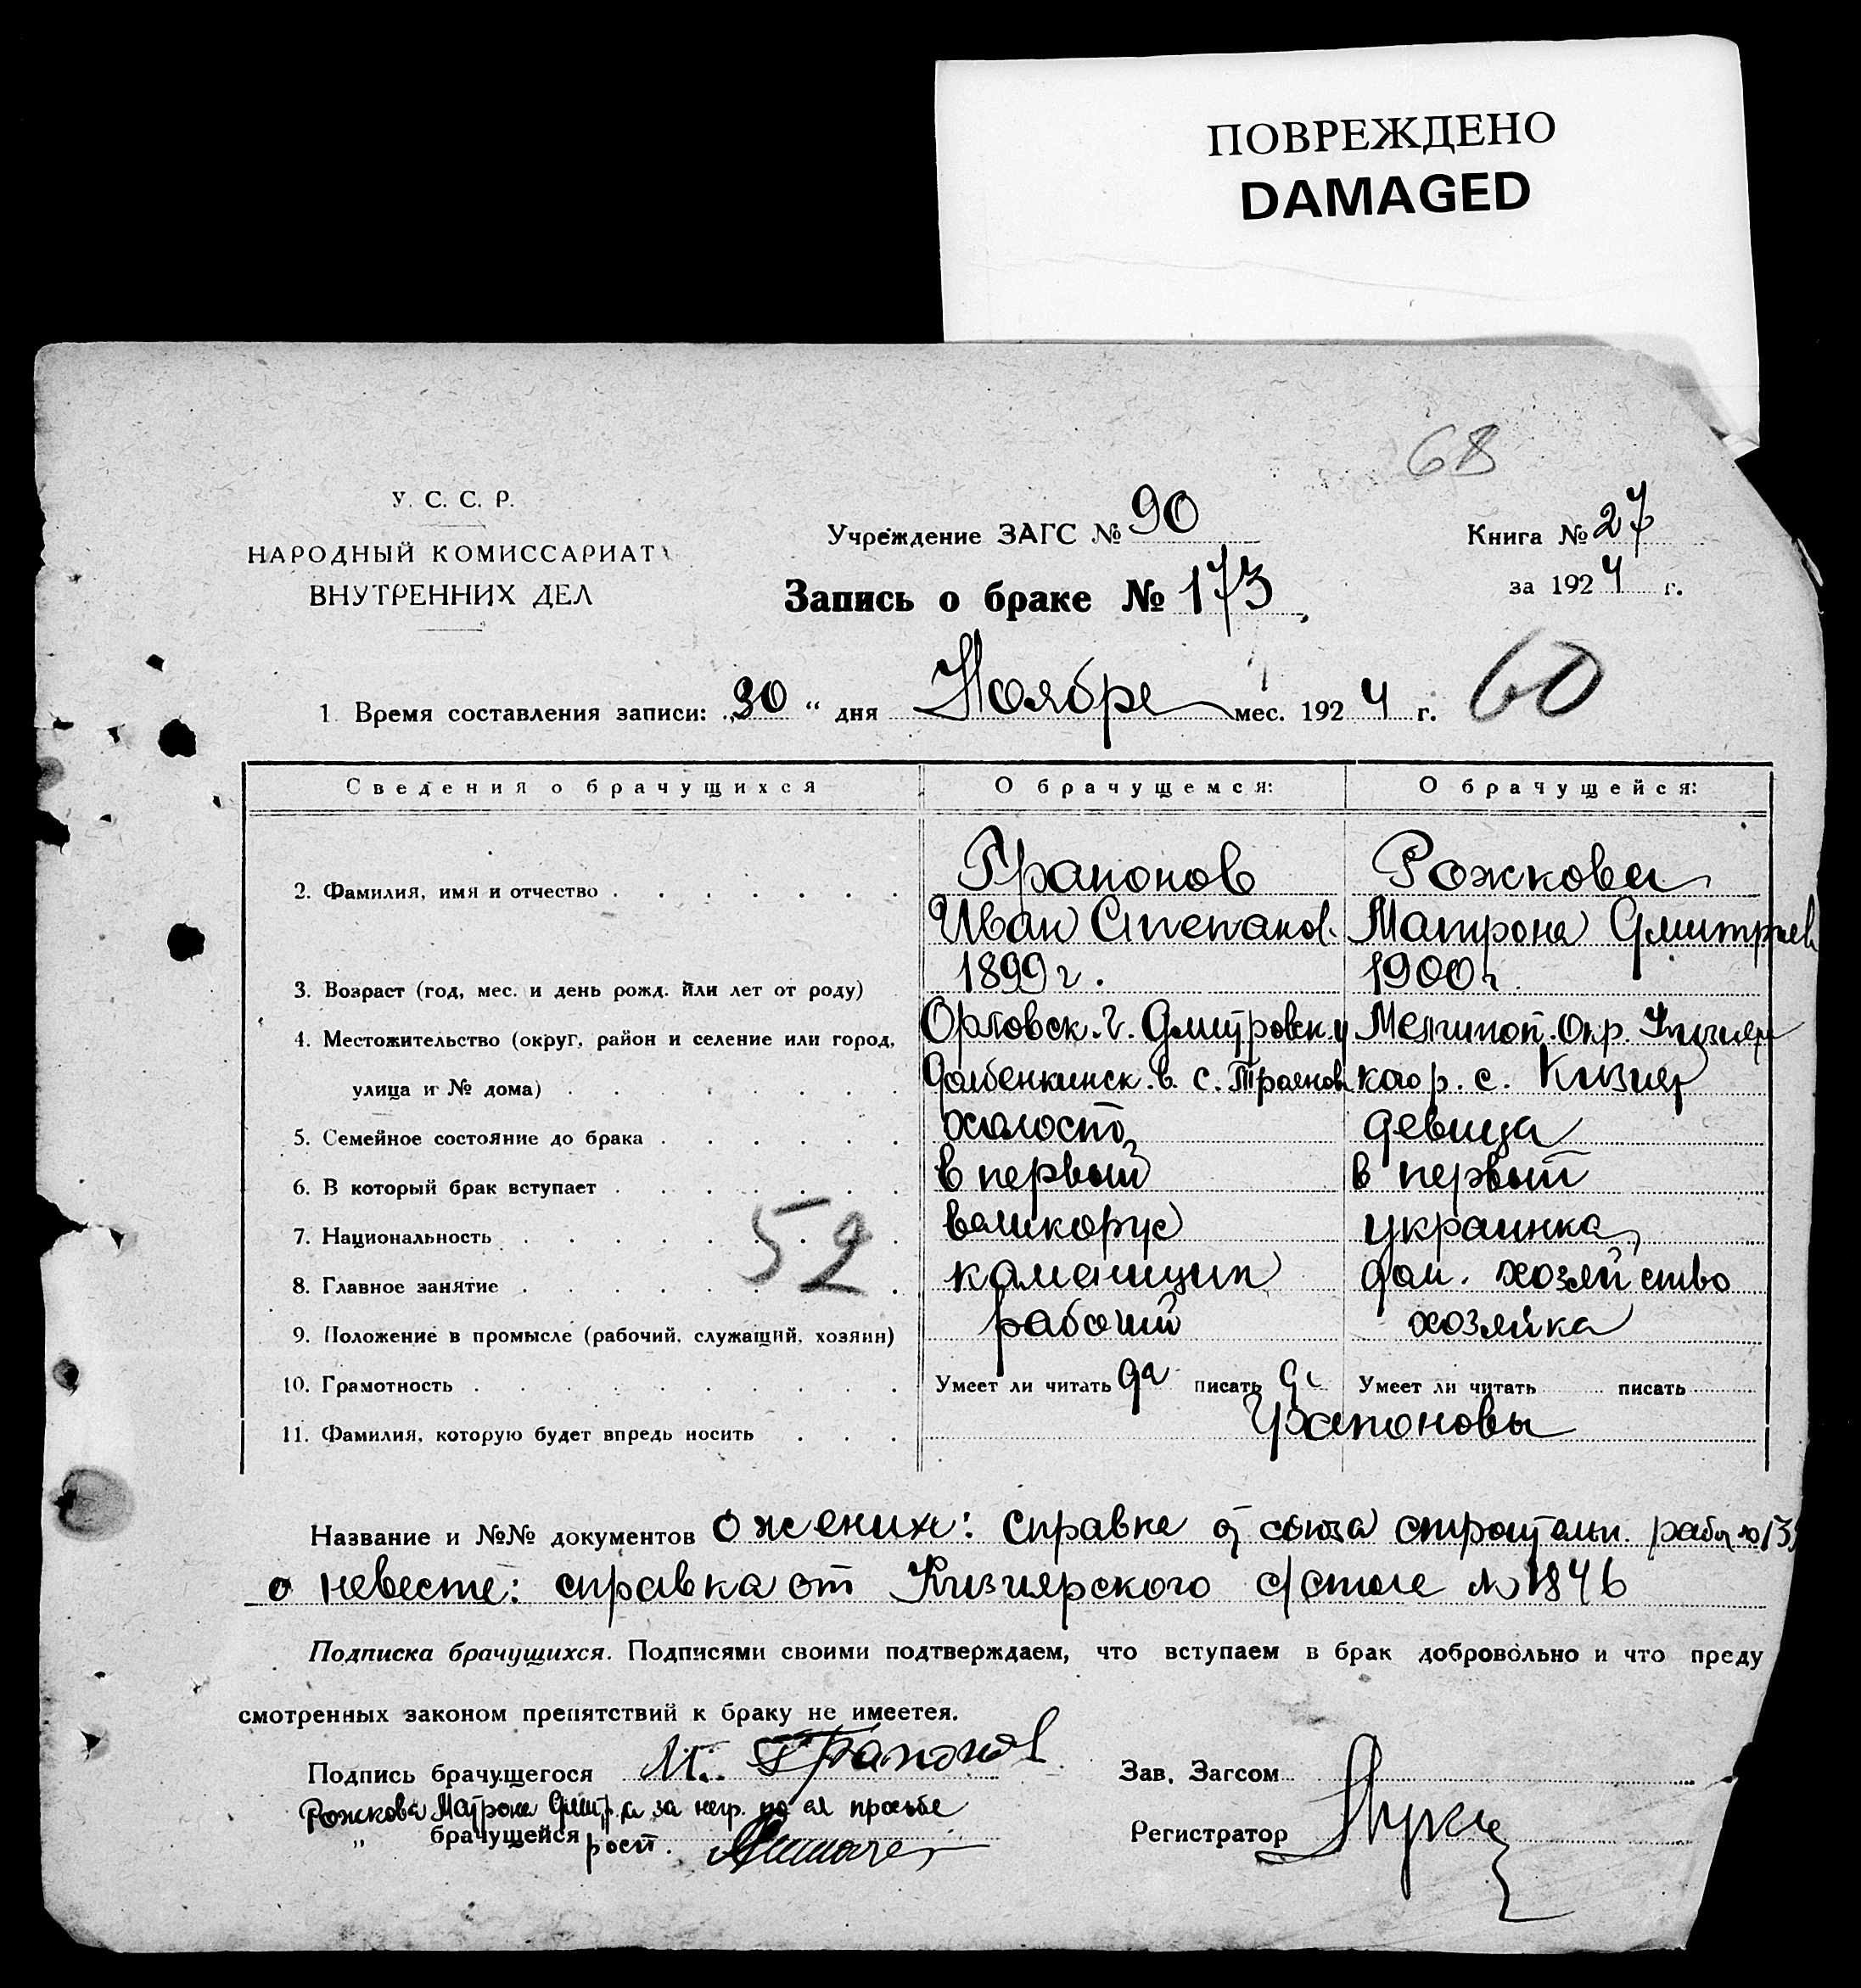 ПОВРЕЖДЕНО
DAMAGED
68
У. С. С. Р.
НАРОДНЫЙ КОМИССАРИАТ
ВНУТРЕННИХ ДЕЛ
Учреждение ЗАГС № 90
Книга № 27
Запись о браке № 173
за 1924 г.
1. Время составления записи: „30“ дня Ноября мес. 1924 г.
60
Сведения о брачущихся О брачущемся: О брачущейся:
2. Фамилия, имя и отчество Грапонов Рожкова
Иван Степанов. Матрона Дмитриев
3. Возраст (год, мес. и день рожд. или лет от роду) 1899 г. 1900 г.
4. Местожительство (округ, район и селение или город, Орловск. г. Дмитровск у Мелитоп. Окр. Кизияр
улица и № дома) Долбенкинск. в. с. Трояново кого р. с. Кизияр
5. Семейное состояние до брака холост девица
6. В который брак вступает в первый в первый
7. Национальность великорус украинка
52
8. Главное занятие каменщик дом. хозяйство
9. Положение в промысле (рабочий, служащий, хозяин) рабочий хозяйка
10. Грамотность Умеет ли читать да писать да Умеет ли читать писать
11. Фамилия, которую будет впредь носить Грапоновы
Название и №№ документов о женихе: справка от союза строительн. рабоч
о невесте: справка от Кизиярского с/стола № 1846
Подписка брачущихся. Подписями своими подтверждаем, что вступаем в брак добровольно и что преду
смотренных законом препятствий к браку не имеется.
Подпись брачущегося И. Грапонов
Зав. Загсом
Рожкова Матрона Дмитр. а за негр. по ея просьбе
„ брачущейся рост.
Регистратор